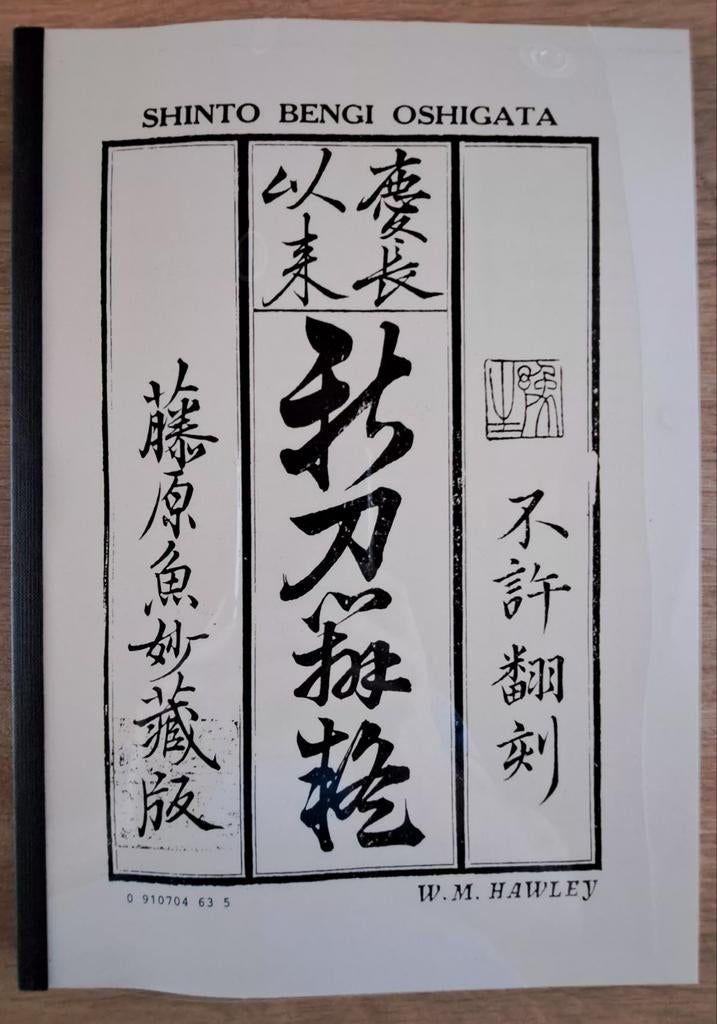 SHINTO BENGI OSHIGATA
不許翻刻
慶長
以来
新刀辨疑
藤原魚妙藏版
0 910704 63 5
W.M. HAWLEY